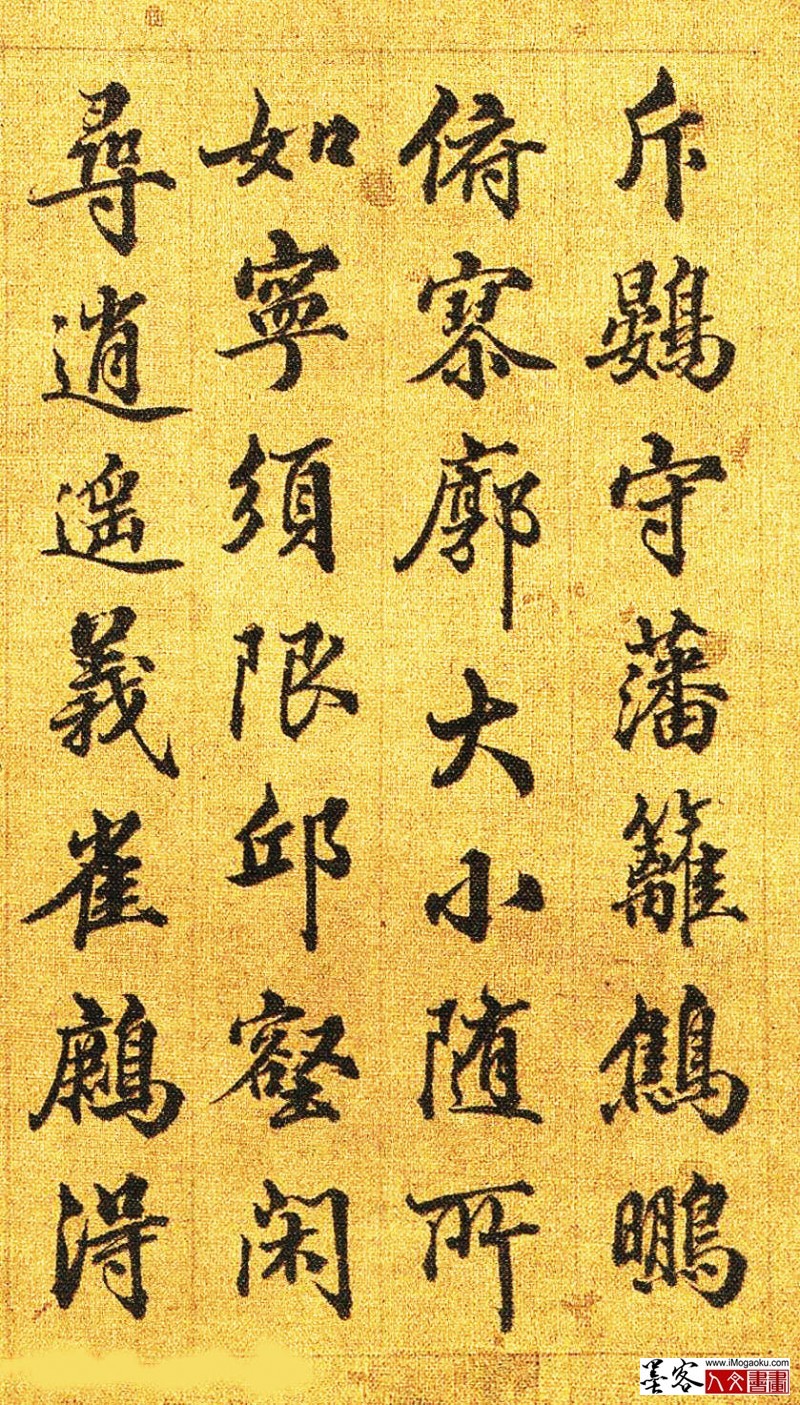 斥鷃守藩籬鷦鵬
俯寥廓大小随所
如寧須限邱壑閑
尋逍遥義雀鷓得
墨客
www.iMogaoku.com
人文書畫